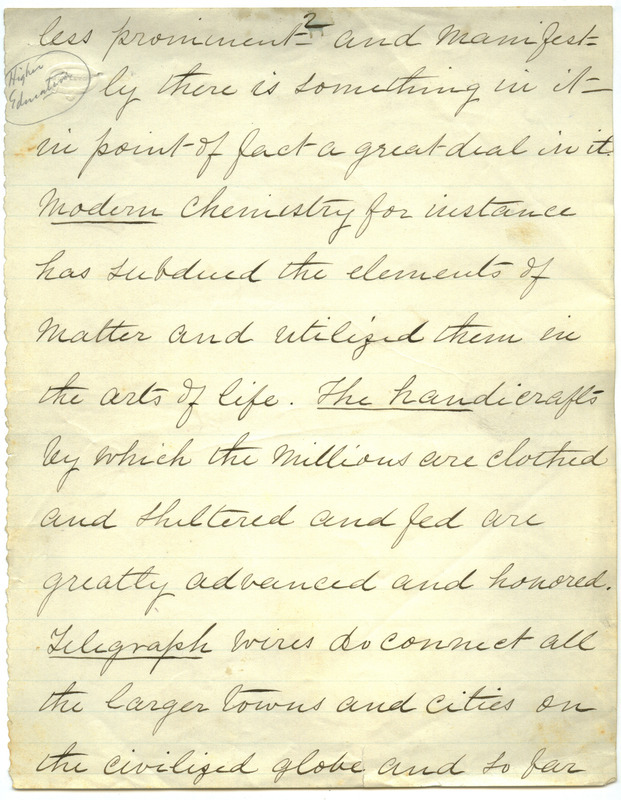 2
less prominent- and manifest=
Higher
Education
ly there is something in it-
in point of fact a great deal in it.
Modern chemistry for instance
has subdued the elements of
matter and utilized them in
the arts of life. The handicrafts
by which the millions are clothed
and sheltered and fed are
greatly advanced and honored.
Telegraph wires do connect all
the larger towns and cities on
the civilized globe and so far